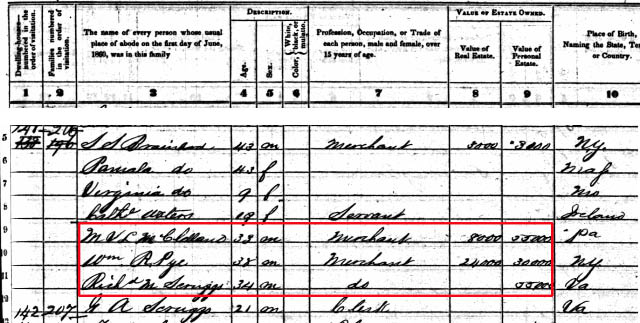 Dwelling-houses— numbered in the order of visitation. Families numbered in the order of visitation. The name of every person whose usual place of abode on the first day of June, 1860, was in this family DESCRIPTION. Age. Sex. Color, White, black, or mulatto. Profession, Occupation, or Trade of each person, male and female, over 15 years of age. VALUE OF ESTATE OWNED. Value of Real Estate. Value of Personal Estate. Place of Birth, Naming the State, or Country.
1 2 3 4 5 6 7 8 9 10
5 S S Brainard 43 m Merchant 3000 3000 NY.
6 Pamala do 43 f Mass
7 Virginia do 9 f Mo
8 Waters 19 f Servant Ireland
9 M V L McClelland 33 m Merchant 8000 55000 Pa
10 Wm R Pye 38 m Merchant 24000 30000 NY
11 Richd M Scruggs 34 m do 55000 Va
12 142 207 G A Scruggs 21 m Clerk Va